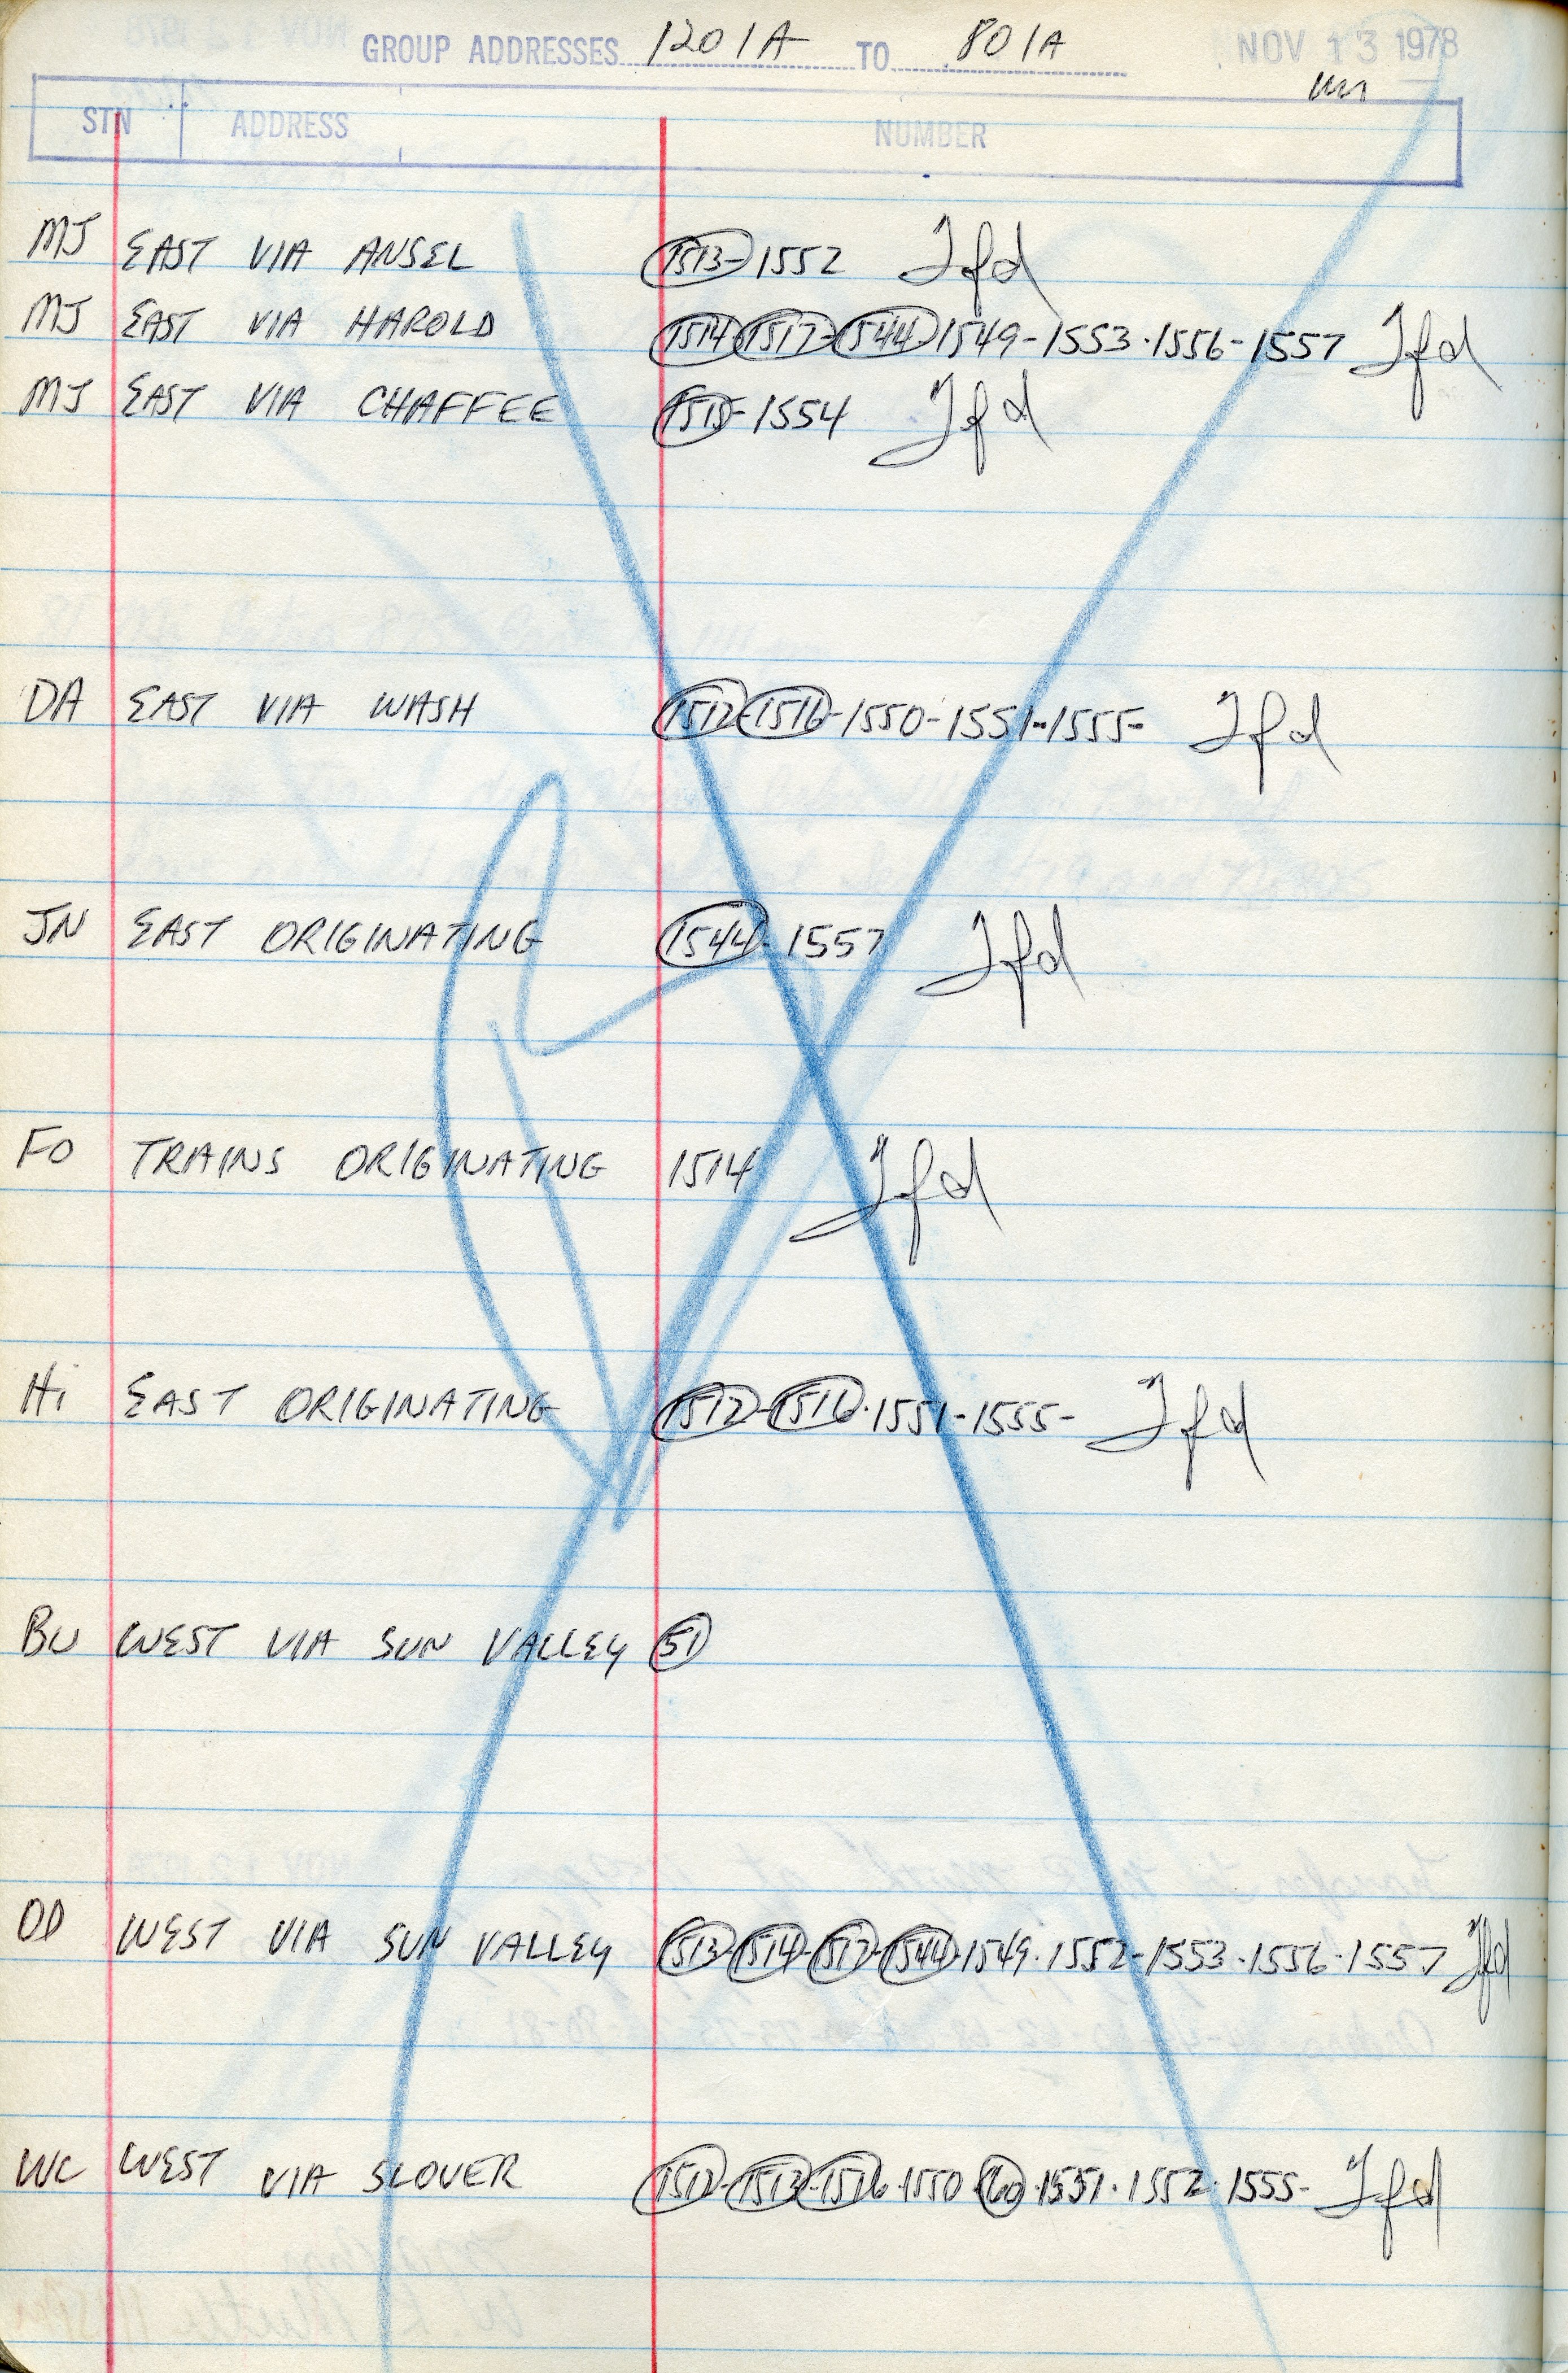 GROUP ADDRESSES 1201A TO 801A NOV 13 1978
STN ADDRESS NUMBER
MJ EAST VIA ANSEL 1513-1552 Jfd
MJ EAST VIA HAROLD 1514-1517-1544-1549-1553·1556-1557 Jfd
MJ EAST VIA CHAFFEE 1515-1554 Jfd
DA EAST VIA WASH 1512-1516-1550-1551-1555- Jfd
JN EAST ORIGINATING 1544-1557 Jfd
FO TRAINS ORIGINATING 1514 Jfd
Hi EAST ORIGINATING 1512-1516·1551-1555- Jfd
BU WEST VIA SUN VALLEY 51
OD WEST VIA SUN VALLEY 1513-1514-1517-1544-1549·1552-1553·1556·1557 Jfd
WC WEST VIA SLOVER 1512-1513-1516·1550·60·1551·1552·1555- Jfd